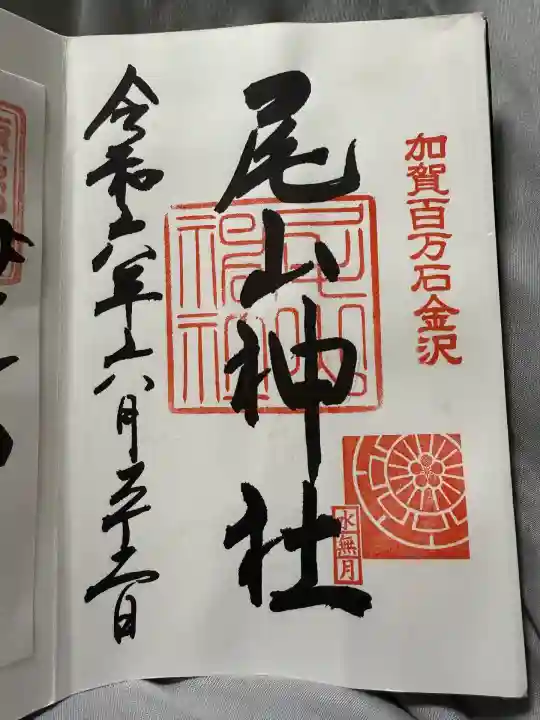 加賀百万石金沢
尾山神社
水無月
令和六年六月